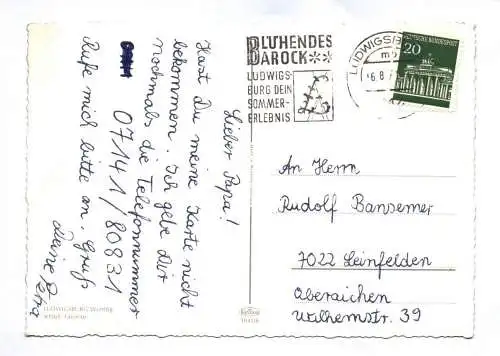 BLÜHENDES
BAROCK**
LUDWIGS-
BURG DEIN
SOMMER-
ERLEBNIS
DEUTSCHE BUNDESPOST
20
Lieber Papa!
Hast Du meine Karte nicht
bekommen. Ich gebe Dir
nochmals die Telefonnummer
07141/80831
Rufe mich bitte an. Gruß
Deine Petra
An Herrn
Rudolf Bansemer
7022 Leinfelden
Oberaichen
Wilhelmstr. 39